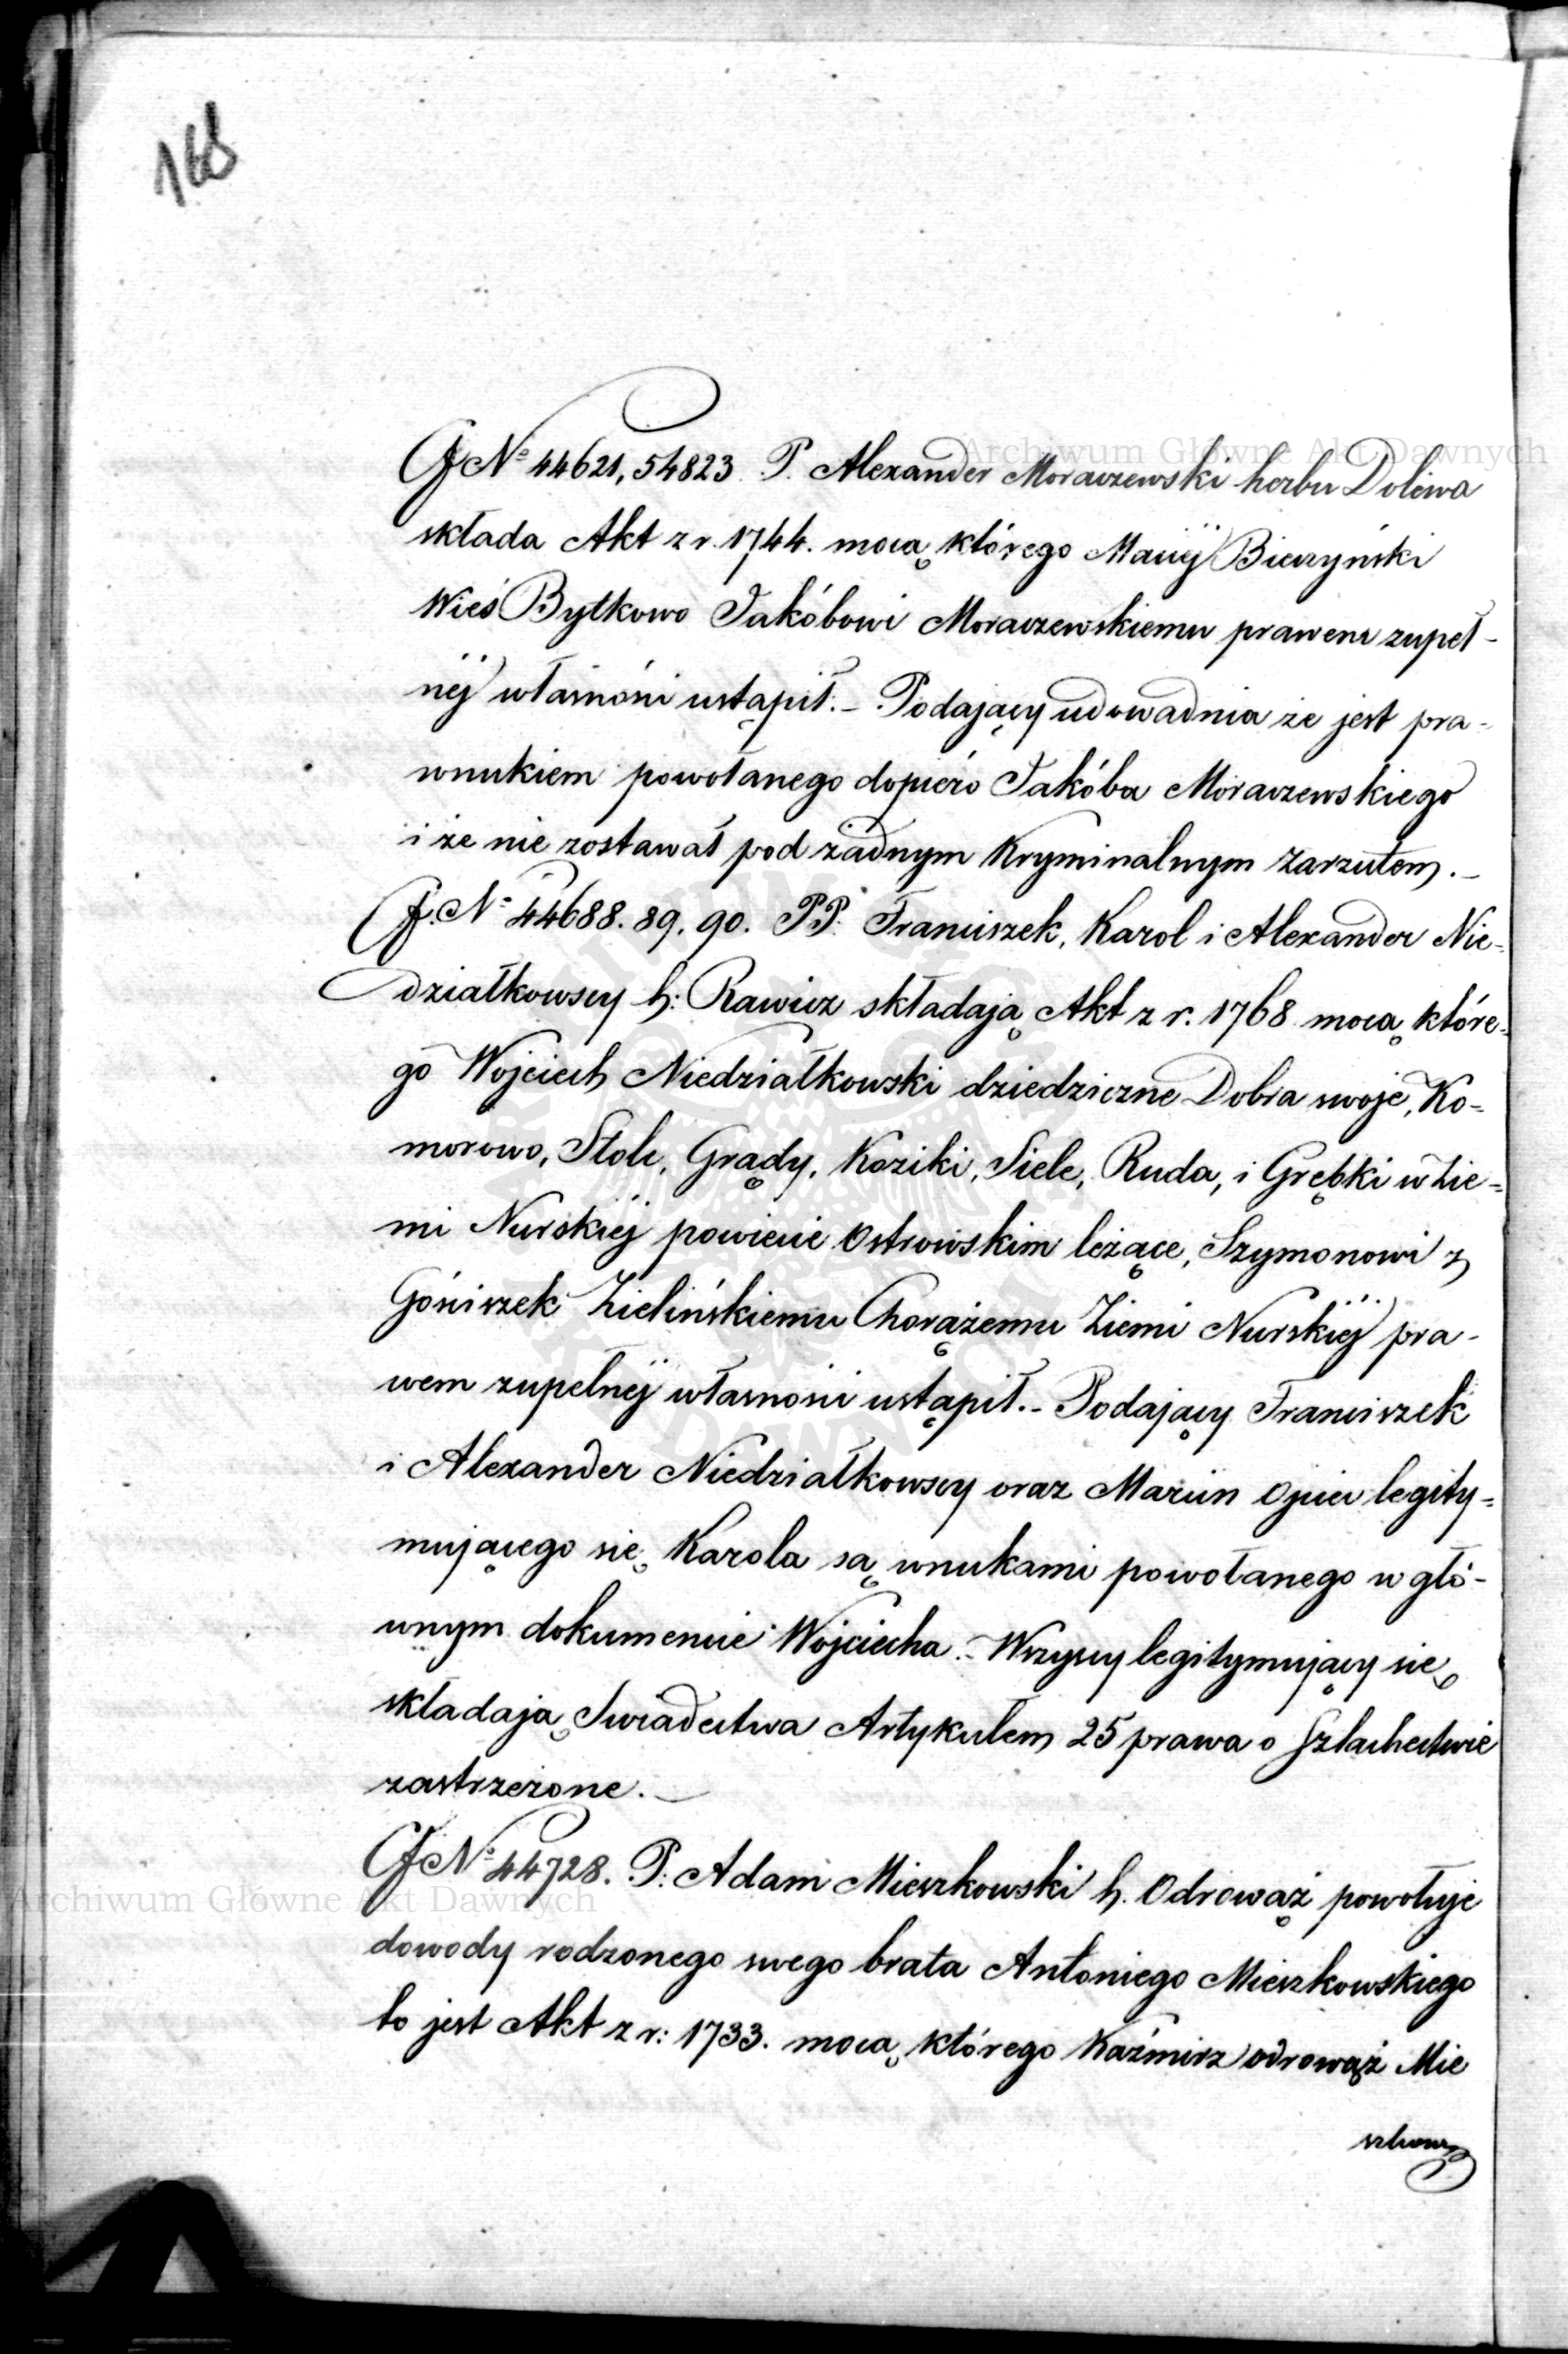 168
Archiwum Główne Akt Dawnych
N° 44621, 54823. P. Alexander Moraczewski herbu Doliwa
składa Akt z r. 1744. mocą którego Maciej Bieczyński
Wieś Bytkowo Jakóbowi Moraczewskiemu prawem zupeł-
néj własności ustąpił. – Podający udowadnia że jest pra-
wnukiem powołanego dopiéro Jakóba Moraczewskiego
i że nie zostawał pod żadnym Kryminalnym zarzutem. –
N° 44688. 89. 90. PP. Franciszek, Karol i Alexander Nie-
działkowscy h: Rawicz składają Akt z r. 1768 mocą które-
go Wojciech Niedziałkowski dziedziczne Dobra swoje, Ko-
morowo, Stok, Grądy, Koziki, Siele, Ruda, i Grębki w Zie-
mi Nurskiéj powiecie Ostrowskim leżące, Szymonowi z
Gościszek Zielińskiemu Chorążemu Ziemi Nurskiéj pra-
wem zupełnéj własności ustąpił. – Podający Franciszek
i Alexander Niedziałkowscy oraz Marcin Ojciec legity-
mującego się Karola są wnukami powołanego w głó-
wnym dokumencie Wojciecha. – Wszyscy legitymujący się
składają Swiadectwa Artykułem 25 prawa o Szlachectwie
zastrzeżone. –
N° 44728. P. Adam Mieszkowski h. Odrowąż powołuje
Archiwum Główne Akt Dawnych
dowody rodzonego swego brata Antoniego Mieszkowskiego
to jest Akt z r: 1733. mocą którego Kaźmirz Odrowąż Mie